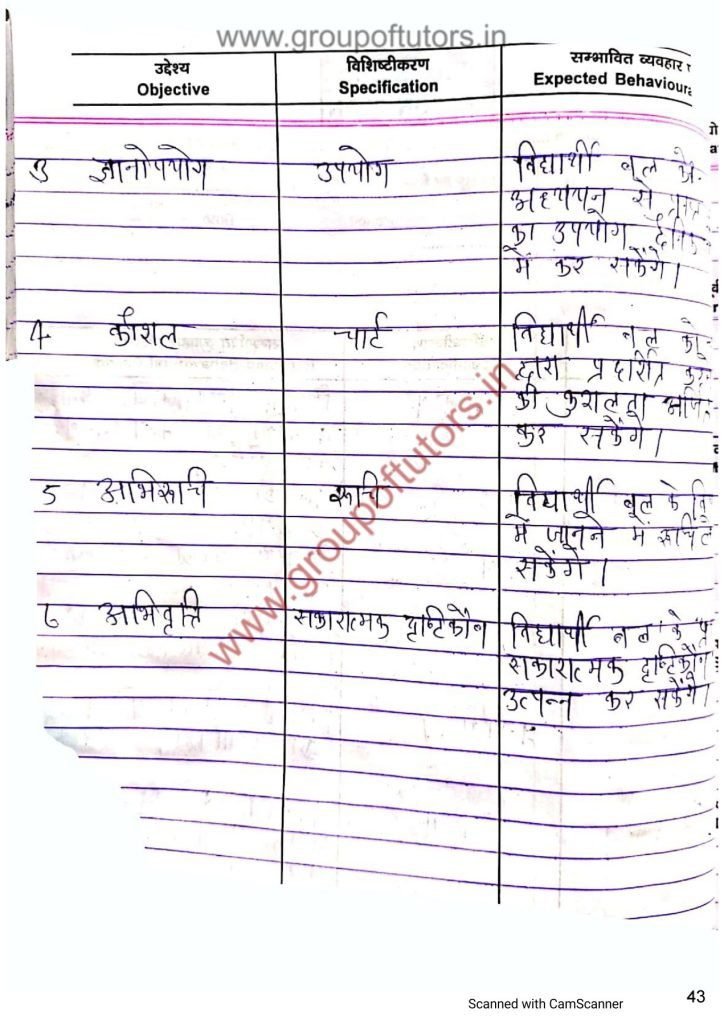 www.groupoftutors.in
उद्देश्य विशिष्टीकरण सम्भावित व्यवहार
Objective Specification Expected Behavioura
3 ज्ञानोपयोग उपयोग विद्यार्थी बल के
अध्ययन से
का उपयोग दैनिक
में कर सकेंगे।
4 कौशल चार्ट विद्यार्थी बल को
द्वारा प्रदर्शित
की कुशलता
कर सकेंगे।
5 अभिरूचि रूचि विद्यार्थी बल के
में जानने में रूचि
सकेंगे।
6 अभिवृत्ति सकारात्मक दृष्टिकौन विद्यार्थी बल के
सकारात्मक दृष्टिकौन
उत्पन्न कर सकेंगे।
www.groupoftutors.in
43
Scanned with CamScanner